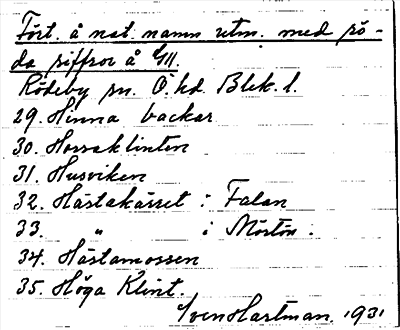 Fört. å nat. namn utm. med rö-
da siffror å G/II.
Rödeby sn. Ö. hd. Blek. l.
29. Hinna backar
30. Horsaklinten
31. Husviken
32. Hästakärret i Falan
33. " i Mörtön:
34. Hästamossen
35. Höga Klint.
Sven Hartman. 1931